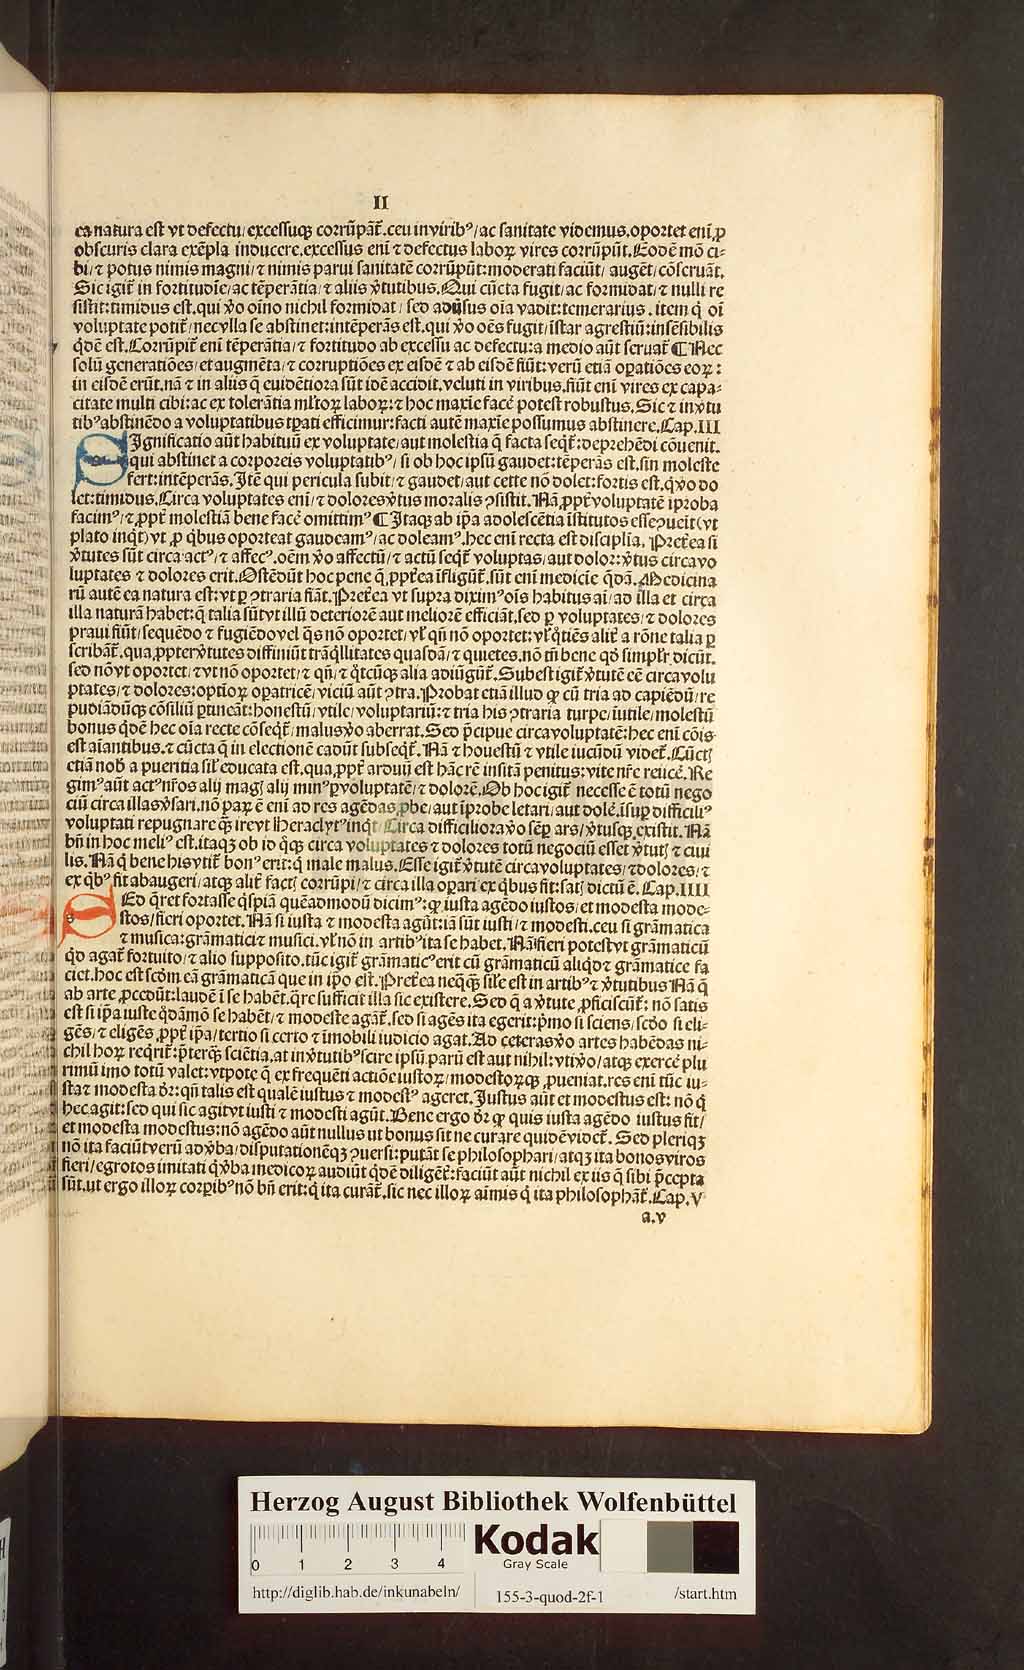 II
ea natura est vt defectu/excessuqꝫ corrūpāt̄.ceu in viribꝰ/ac sanitate videmus.oportet eni̅ ꝓ
obscuris clara exe̅pla inducere.excessus eni̅ ⁊ defectus laboꝝ vires corrūpūt.Eode̅ mō ci⸗
bi/⁊ potus nimis magni/⁊ nimis parui sanitatē corrūpūt:moderati faciūt/ augēt/cōseruāt.
Sic igit̄ in fortitudine/ac tēperātia/⁊ aliis v̄tutibus.Qui cūcta fugit/ac formidat/⁊ nulli re
sistit:timidus est.qui v̄o oīno nichil formidat/ sed aduersus oīa vadit:temerarius.item q̄ oī
voluptate potit̄/nec vlla se abstinet:intēperās est.qui v̄o oēs fugit/īstar agrestiū:insēsibilis
q̄dē est.Corrūpit̄ eni̅ tēperātia/⁊ fortitudo ab excessu ac defectu:a medio aūt seruat̄ ¶ Nec
solū generatiōes/et augmēta/⁊ corruptiōes ex eisdē ⁊ ab eisdē fiūt:verū etiā oꝑatiōes eoꝝ:
in eisdē erūt.nā ⁊ in aliis q̄ euidētiora sūt idē accidit.veluti in viribus.fiūt eni̅ vires ex capa⸗
citate multi cibi:ac ex tolerātia mlt̄oꝝ laboꝝ:⁊ hoc maxīe facē potest robustus.Sic ⁊ in v̄tu
tibꝰ abstinēdo a voluptatibus tꝑati efficimur:facti autē maxīe possumus abstinere.Cap.III
SIgnificatio aūt habituū ex voluptate/aut molestia q̄ facta seqt̄:deprehēdi cōuenit.
qui abstinet a corporeis voluptatibꝰ/ si ob hoc ipsū gaudet:tēperās est.sin moleste
fert:intēperās.Itē qui pericula subit/⁊ gaudet/aut certe nō dolet:fortis est.q̄ v̄o do
let:timidus.Circa voluptates eni̅/⁊ dolores v̄tus moralis ꝯsistit.Nā ꝓpt̄ voluptatē īproba
facimꝰ/⁊ ꝓpt̄ molestiā bene facē omittimꝰ ¶ Itaqꝫ ab ip̄a adolescētia īstitutos esse ꝯueit(vt
plato inq̄t)vt ꝓ q̄bus oporteat gaudeamꝰ/ac doleamꝰ.hec eni̅ recta est disciplīa.Pret̄ea si
v̄tutes sūt circa actꝰ/⁊ affecꝰ.oēm v̄o affectū/⁊ actū seqt̄ voluptas/aut dolor:v̄tus circa vo
luptates ⁊ dolores erit.Ostēdūt hoc pene q̄.ꝓpt̄ea īfligūt̄.sūt eni̅ medicīe q̄dā.Medicina
rū autē ea natura est:vt ꝑ ꝯtraria fiāt.Pret̄ea vt supra diximꝰ oīs habitus aī/ad illa et circa
illa naturā habet:q̄ talia sūt vt illū deteriorē aut meliorē efficiāt.sed ꝑ voluptates/⁊ dolores
praui fiūt/sequēdo ⁊ fugiēdo vel q̄s nō oportet/vl̄ qn̄ nō oportet:vl̄ q̄tiēs alit̄ a rōne talia ꝑ
scribāt̄.qua ꝓpter v̄tutes diffiniūt trāq̄llitates quasdā/⁊ quietes.nō tn̄ bene qd̄ simpl̄r dicūt.
sed nō vt oportet/⁊ vt nō oportet/⁊ qn̄/⁊ q̄tcūqꝫ alia adiūgūt̄.Subest igit̄ v̄tutē eē circa volu
ptates/⁊ dolores:optioꝝ oꝑatricē/viciū aūt ꝯtra.Probat etiā illud ꝙ cū tria ad capiēdū/re
pudiādūqꝫ cōsiliū ꝑtineāt:honestū/vtile/voluptariū:⁊ tria his ꝯtraria turpe/īutile/molestū
bonus q̄dē hec oīa recte cōseqt̄/malus v̄o aberrat.Sed p̄cipue circa voluptatē:hec eni̅ cōis
est aīantibus.⁊ cūcta q̄ in electionē cadūt subseqt̄.Nā ⁊ honestū ⁊ vtile iucūdū videt̄.Cūctꝭ
etiā nob̄ a pueritia sil̄ educata est.qua ꝓpt̄ arduū est hāc rē insitā penitus:vite nr̄e reiicē.Re
gimꝰ aūt actꝰ nr̄os alij magꝭ alij minꝰ ꝑ voluptatē/⁊ dolorē.Ob hoc igit̄ necesse ē totū nego
ciū circa illas v̄sari.nō paꝝ ē eni̅ ad res agēdas ꝓbe/aut īprobe letari/aut dolē.īsuꝑ difficiliꝰ
voluptati repugnare q̄ꝫ ire vt Heraclytꝰ inq̄t Circa difficiliora v̄o sēꝑ ars/v̄tusqꝫ existit.Nā
bn̄ in hoc meliꝰ est.itaqꝫ ob id q̄qꝫ circa voluptates ⁊ dolores totū negociū esset v̄tutꝭ ⁊ ciui
lis.Nā q̄ bene his vtit̄ bonꝰ erit:q̄ male malus.Esse igit̄ v̄tutē circa voluptates/⁊ dolores/⁊
ex q̄bꝰ fit ab augeri/atqꝫ alit̄ factꝭ corrūpi/⁊ circa illa oꝑari ex q̄bus fit:satꝭ dictū ē.Cap.IIII
SEd q̄ret fortasse q̄spiā quēadmodū dicimꝰ:ꝙ iusta agēdo iustos/et modesta mode⸗
stos/fieri oportet.Nā si iusta ⁊ modesta agūt:iā sūt iusti/⁊ modesti.ceu si grāmatica
⁊ musica:grāmatici ⁊ musici.vl̄ nō in artibꝰ ita se habet.Nā fieri potest vt grāmaticū
q̄d agat̄ fortuito/⁊ alio supposito.tūc igit̄ grāmaticꝰ erit cū grāmaticū aliqd ⁊ grāmatice fa
ciet.hoc est scdm eā grāmaticā que in ip̄o est.Pret̄ea neqqꝫ sil̄e est in artibꝰ ⁊ v̄tutibus Nā q̄
ab arte ꝓcedūt:laudē ī se habēt.q̄re sufficit illa sic existere.Sed q̄ a v̄tute ꝓficiscūt̄:nō satis
est si ip̄a iuste q̄dāmō se habēt/⁊ modeste agāt̄.sed si agēs ita egerit:p̄mo si sciens/scd̄o si eli⸗
gēs/⁊ eligēs ꝓpt̄ ip̄a/tertio si certo ⁊ īmobili iudicio agat.Ad ceteras v̄o artes habēdas ni⸗
chil hoꝝ reqrit̄:p̄terqꝫ sciētia.at in v̄tutibꝰ scire ipsū parū est aut nihil:vti v̄o/atqꝫ exercē plu
rimū imo totū valet:vtpote q̄ ex frequēti actiōe iustoꝝ/modestoꝝqꝫ ꝓueniat.res eni̅ tūc iu⸗
sta ⁊ modesta dr̄:qn̄ talis est qualē iustus ⁊ modestꝰ ageret.Iustus aūt et modestus est: nō q̄
hec agit:sed qui sic agit vt iusti ⁊ modesti agūt.Bene ergo dr̄ ꝙ quis iusta agēdo iustus fit/
et modesta modestus:nō agēdo aūt nullus ut bonus sit ne curare quidē videt̄. Sed pleriqꝫ
nō ita faciūt verū ad v̄ba/disputationēqꝫ ꝯuersi:putāt se philosophari/atqꝫ ita bonos viros
fieri/egrotos imitati q̄ v̄ba medicoꝝ audiūt q̄dē diligēt̄:faciūt aūt nichil ex iis q̄ sibi p̄cepta
sūt.ut ergo illoꝝ corꝑibꝰ nō bn̄ erit:q̄ ita curāt̄.sic nec illoꝝ aīmis q̄ ita philosophāt̄.Cap.V
a.v
Herzog August Bibliothek Wolfenbüttel
0 1 2 3 4
Kodak
Gray Scale
http://diglib.hab.de/inkunabeln/ 155-3-quod-2f-1 /start.htm